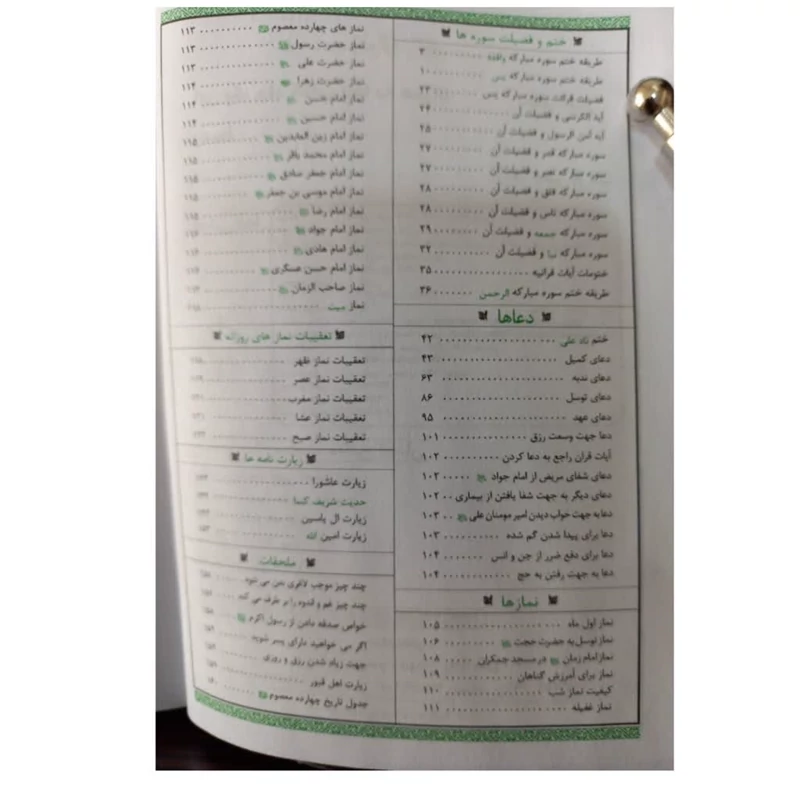 ختم و فضیلت سوره ها
طریقه ختم سوره مبارکه واقعه .......... ۴
طریقه ختم سوره مبارکه یس .......... ۱۰
فضیلت قرائت سوره مبارکه یس .......... ۲۳
آیه الکرسی و فضیلت آن .......... ۲۴
آیه آمن الرسول و فضیلت آن .......... ۲۵
سوره مبارکه قدر و فضیلت آن .......... ۲۷
سوره مبارکه نصر و فضیلت آن .......... ۲۷
سوره مبارکه فلق و فضیلت آن .......... ۲۸
سوره مبارکه ناس و فضیلت آن .......... ۲۸
سوره مبارکه جمعه و فضیلت آن .......... ۲۹
سوره مبارکه نبا و فضیلت آن .......... ۳۲
ختومات آیات قرانیه .......... ۳۵
طریقه ختم سوره مبارکه الرحمن .......... ۳۶
دعاها
ختم ناد علی .......... ۴۲
دعای کمیل .......... ۴۳
دعای ندبه .......... ۶۳
دعای توسل .......... ۸۶
دعای عهد .......... ۹۵
دعا جهت وسعت رزق .......... ۱۰۱
آیات قران راجع به دعا کردن .......... ۱۰۲
دعای شفای مریض از امام جواد ..... ۱۰۲
دعای دیگر به جهت شفا یافتن از بیماری .. ۱۰۲
دعا به جهت خواب دیدن امیر مومنان علی .. ۱۰۳
دعا برای پیدا شدن گم شده .......... ۱۰۳
دعا برای دفع ضرر از جن و انس .......... ۱۰۴
دعا به جهت رفتن به حج .......... ۱۰۴
نمازها
نماز اول ماه .......... ۱۰۵
نماز توسل به حضرت حجت .......... ۱۰۶
نماز امام زمان در مسجد جمکران .......... ۱۰۸
نماز برای آمرزش گناهان .......... ۱۰۹
کیفیت نماز شب .......... ۱۱۰
نماز غفیله .......... ۱۱۱
نماز های چهارده معصوم .......... ۱۱۳
نماز حضرت رسول .......... ۱۱۳
نماز حضرت علی .......... ۱۱۳
نماز حضرت زهرا .......... ۱۱۴
نماز امام حسن .......... ۱۱۴
نماز امام حسین .......... ۱۱۴
نماز امام زین العابدین .......... ۱۱۵
نماز امام محمد باقر .......... ۱۱۵
نماز امام جعفر صادق .......... ۱۱۵
نماز امام موسی بن جعفر .......... ۱۱۵
نماز امام رضا ..........
نماز امام جواد ..........
نماز امام هادی ..........
نماز امام حسن عسکری ..........
نماز صاحب الزمان ..........
نماز میت ..........
تعقیبات نماز های روزانه
تعقیبات نماز ظهر ..........
تعقیبات نماز عصر ..........
تعقیبات نماز مغرب ..........
تعقیبات نماز عشا ..........
تعقیبات نماز صبح ..........
زیارت نامه ها
زیارت عاشورا ..........
حدیث شریف کسا ..........
زیارت ال یاسین ..........
زیارت امین الله ..........
ملحقات
چند چیز موجب لاغری بدن می شود
چند چیز غم و اندوه را بر طرف می کند
خواص صدقه دادن از رسول اکرم
اگر می خواهید دارای پسر شوید
جهت زیاد شدن رزق و روزی
زیارت اهل قبور ..........
جدول تاریخ چهارده معصوم